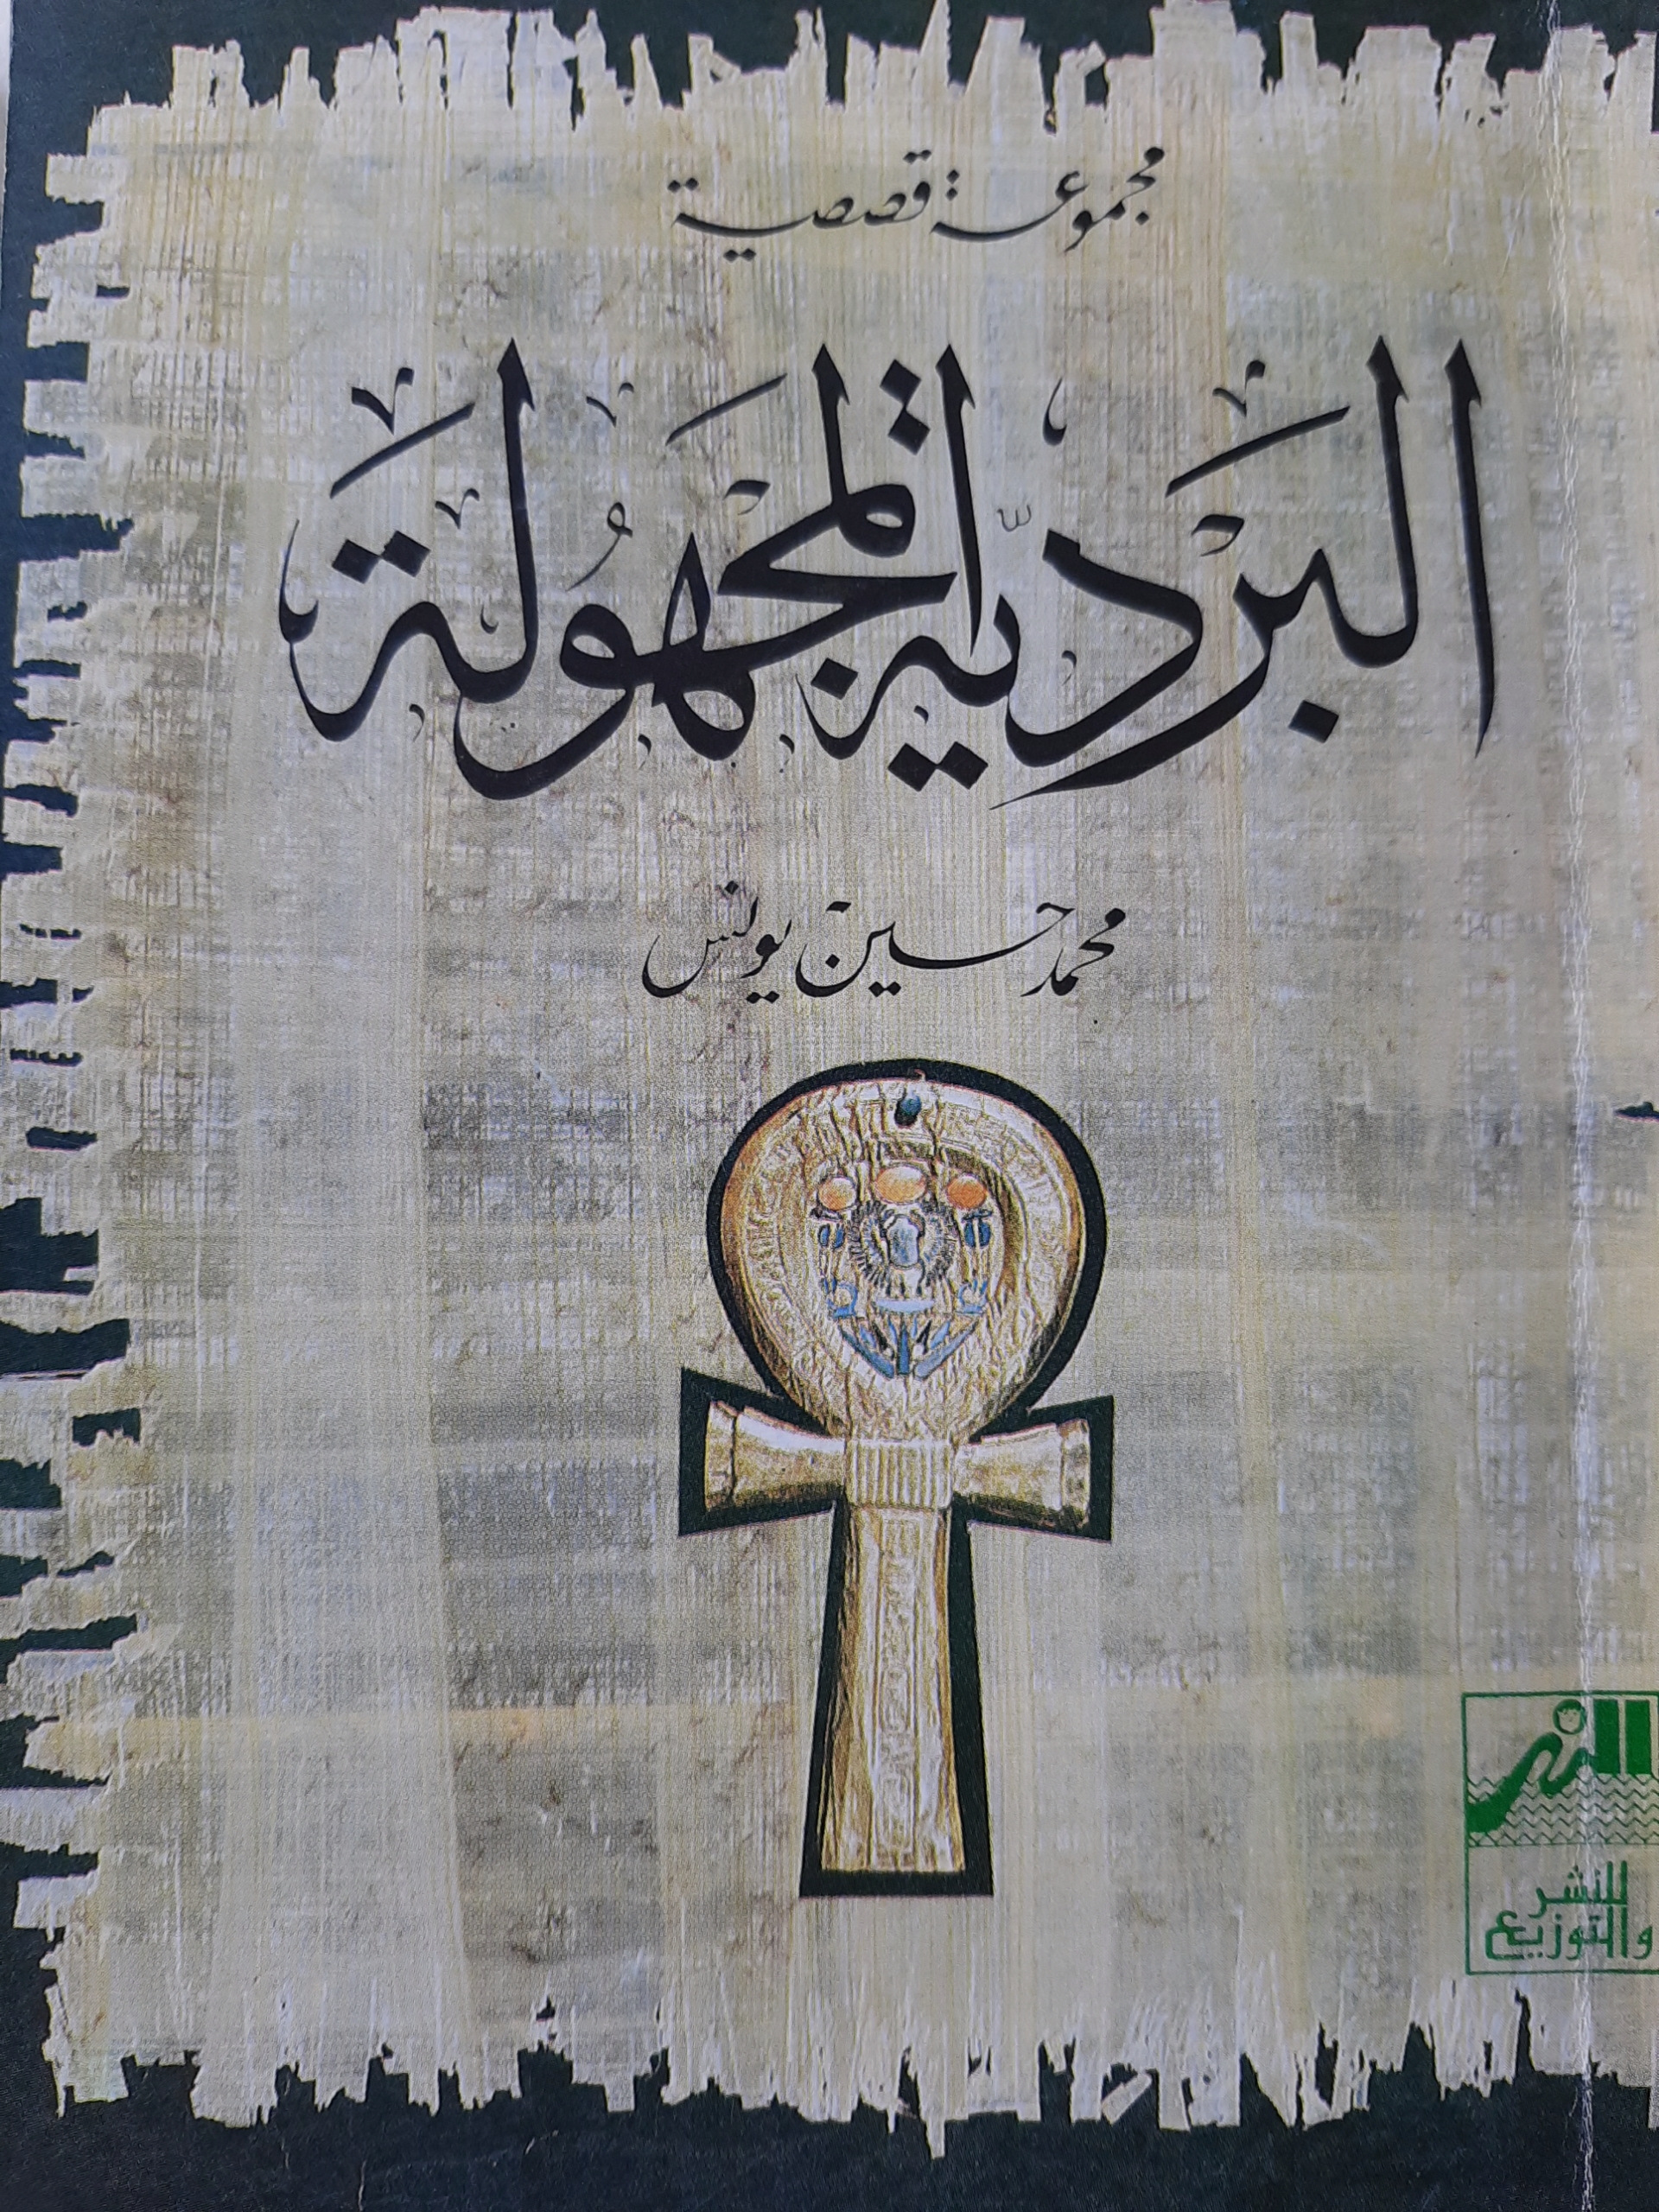 مجموعة قصصية
البَرديّة المجهُولة
محمد حسين يونس
النهر
للنشر
والتوزيع